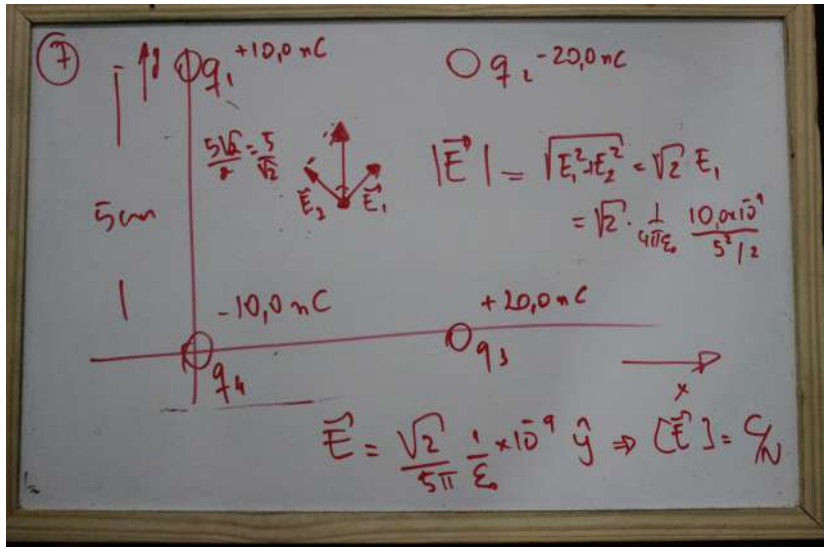 7 y q₁ +10,0 nC q₂ -20,0 nC
5√2/2 = 5/√2
E⃗₂ E⃗₁
|E⃗| = √(E₁²+E₂²) = √2 E₁
= √2 · 1/4πε₀ 10,0x10⁻⁹/5²/2
5cm
-10,0 nC +20,0 nC
q₄ q₃
x
E⃗ = √2/5π 1/ε₀ x10⁻⁹ ŷ ⇒ [E⃗] = C/N